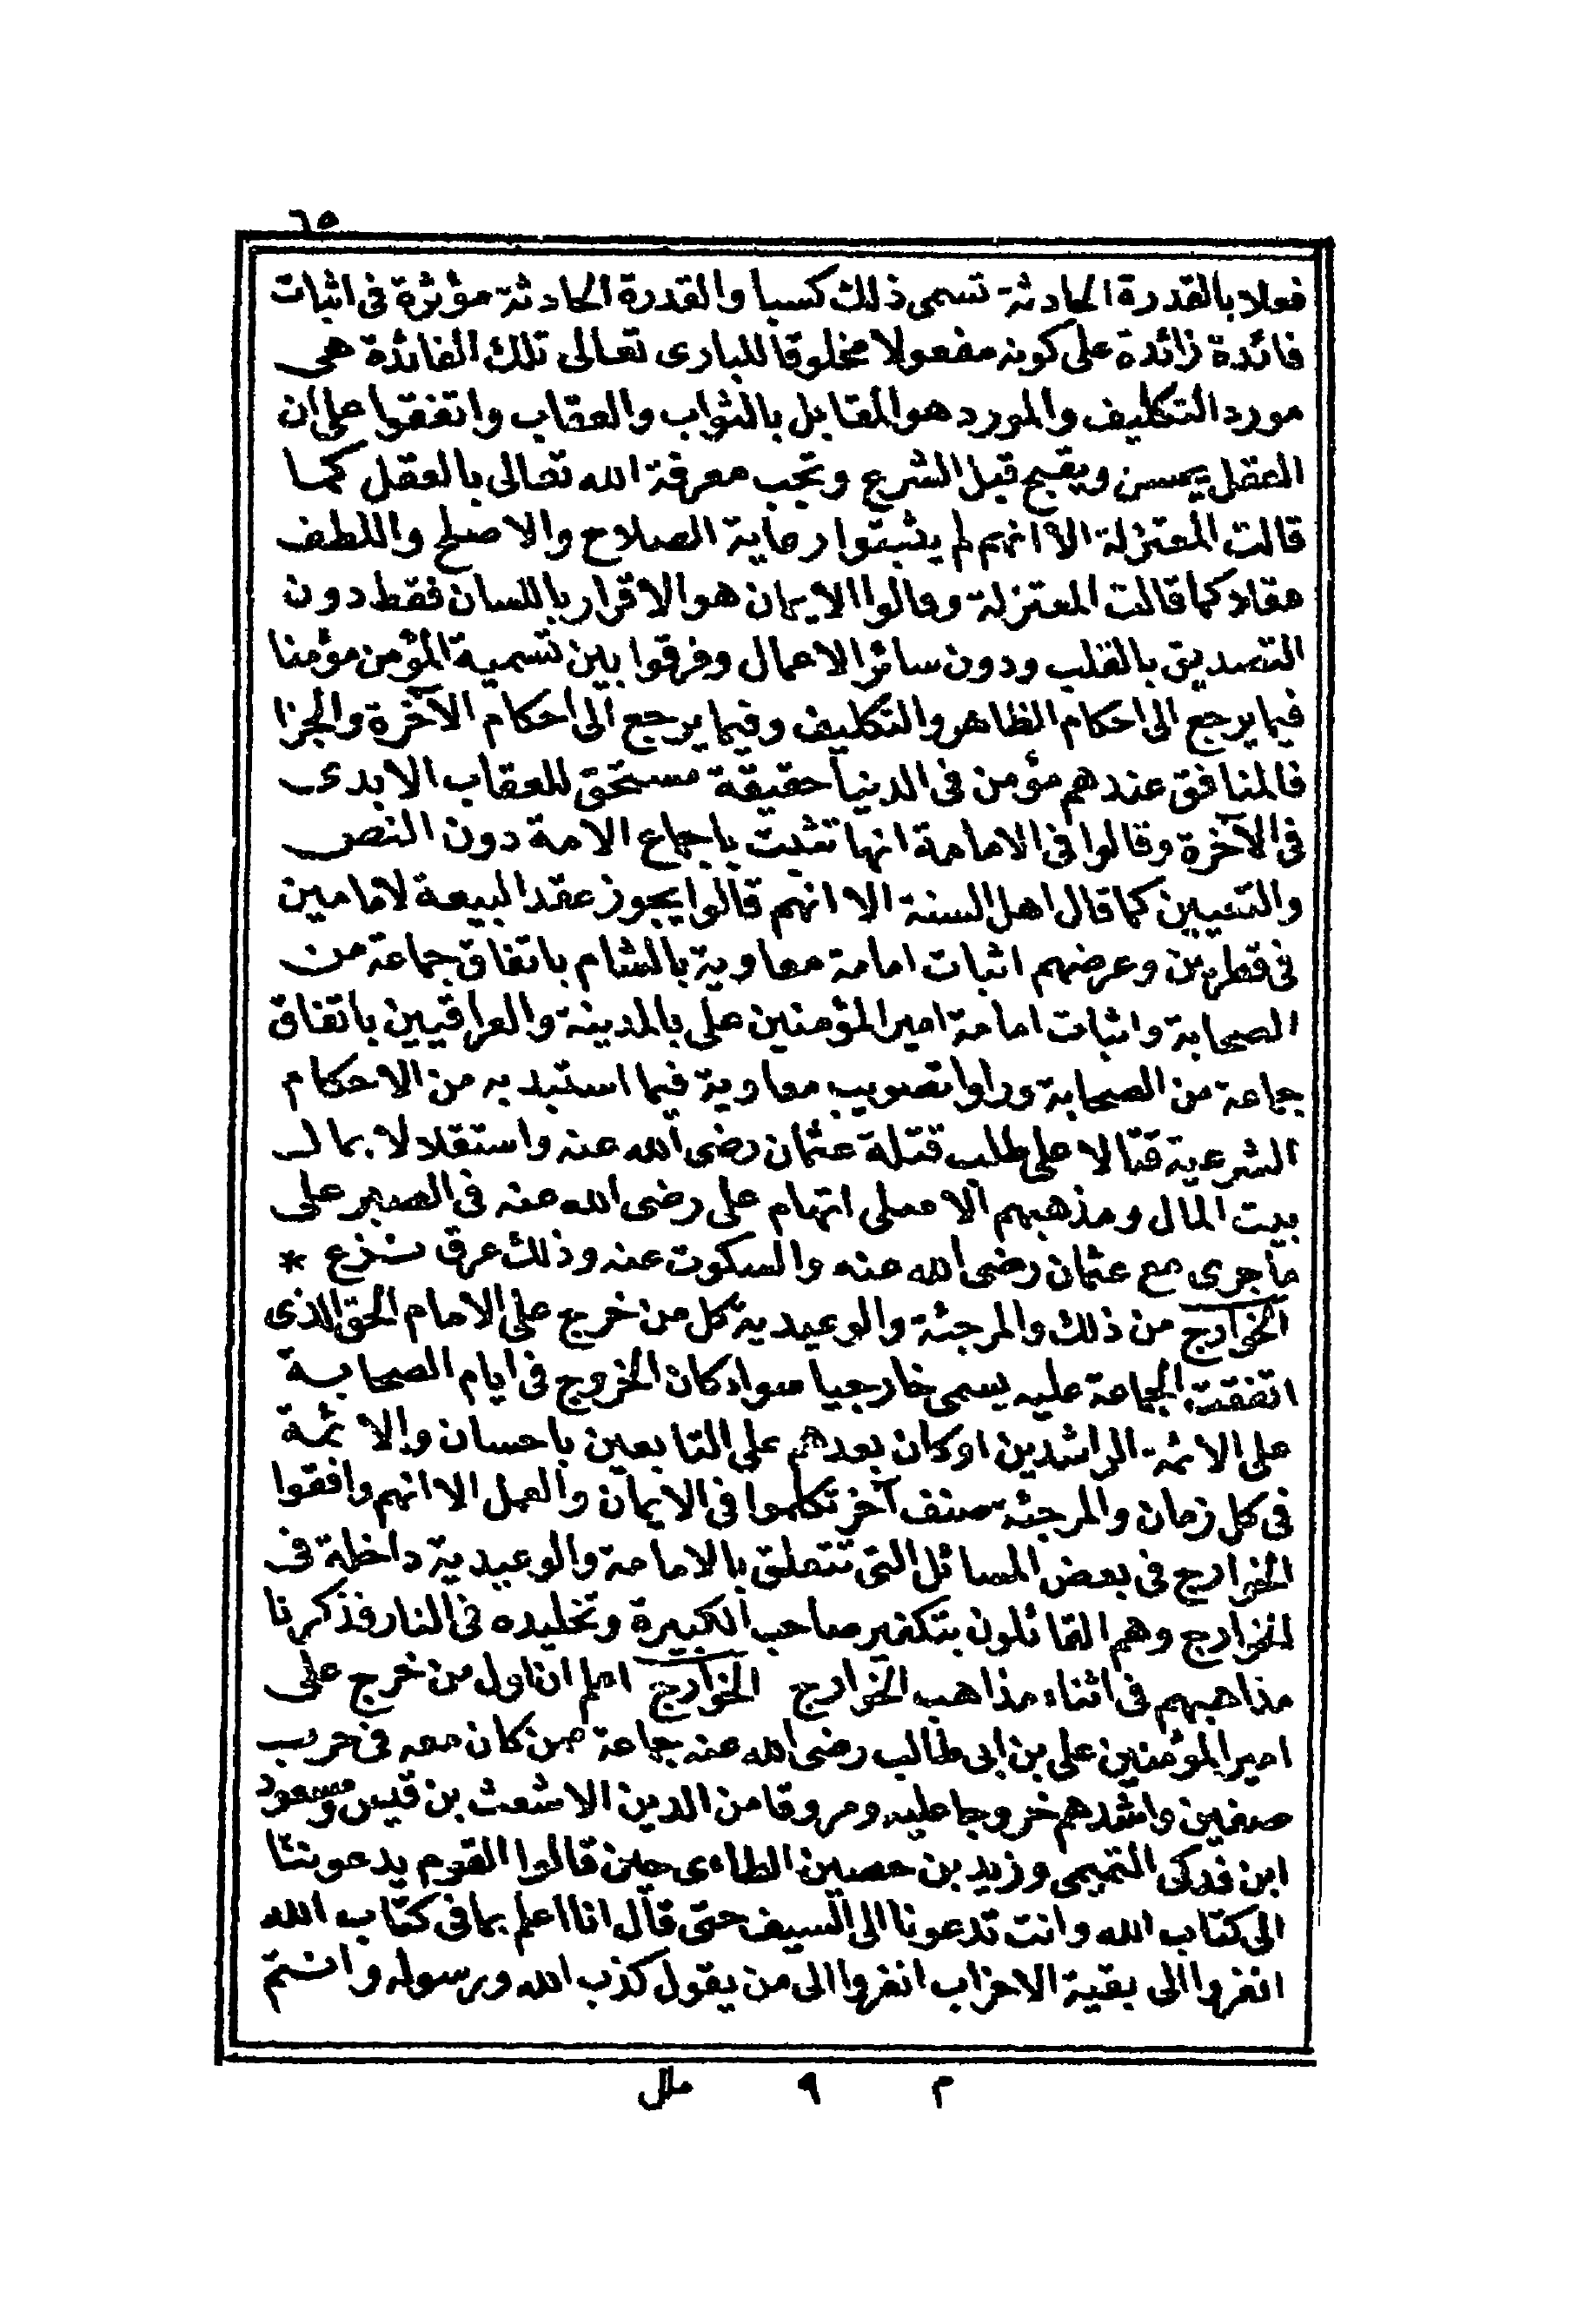 ٦٥
فعلا بالقدرة الحادثة تسمى ذلك كسبا والقدرة الحادثة مؤثرة فى اثبات
فائدة زائدة على كونه مفعولا مخلوقا للبارى تعالى تلك الفائدة هى
مورد التكليف والمورد هو المقابل بالثواب والعقاب واتفقوا على ان
العقل يحسن ويقبح قبل الشرع وتجب معرفة الله تعالى بالعقل كما
قالت المعتزلة الا انهم لم يثبتوا رعاية الصلاح والاصلح واللطف
عقلا كما قالت المعتزلة وقالوا الايمان هو الاقرار باللسان فقط دون
التصديق بالقلب ودون سائر الاعمال وفرقوا بين تسمية المؤمن مؤمنا
فيما يرجع الى احكام الظاهر والتكليف وفيما يرجع الى احكام الآخرة والجزا
فالمنافق عندهم مؤمن فى الدنيا حقيقة مستحق للعقاب الابدى
فى الآخرة وقالوا فى الامامة انها تثبت باجماع الامة دون النص
والتعيين كما قال اهل السنة الا انهم قالوا يجوز عقد البيعة لامامين
فى قطرين وعرضهم اثبات امامة معاوية بالشام باتفاق جماعة من
الصحابة واثبات امامة امير المؤمنين على بالمدينة والعراقيين باتفاق
جماعة من الصحابة وراوا تصويب معاوية فيما استبد به من الاحكام
الشرعية قتالا على طلب قتلة عثمان رضى الله عنه واستقلالا بمال
بيت المال ومذهبهم الاصلى اتهام على رضى الله عنه فى الصبر على
ما جرى مع عثمان رضى الله عنه والسكوت عنه وذلك عرق نزع *
الخوارج من ذلك والمرجئة والوعيدية كل من خرج على الامام الحق الذى
اتفقت الجماعة عليه يسمى خارجيا سواء كان الخروج فى ايام الصحابة
على الائمة الراشدين او كان بعدهم على التابعين باحسان والائمة
فى كل زمان والمرجئة صنف آخر تكلموا فى الايمان والعمل الا انهم وافقوا
الخوارج فى بعض المسائل التى تتعلق بالامامة والوعيدية داخلة فى
الخوارج وهم القائلون بتكفير صاحب الكبيرة وتخليده فى النار فذكرنا
مذاهبهم فى اثناء مذاهب الخوارج الخوارج اعلم ان اول من خرج على
امير المؤمنين على بن ابى طالب رضى الله عنه جماعة ممن كان معه فى حرب
صفين واشدهم خروجا عليه ومروقا من الدين الاشعث بن قيس ومسعود
ابن فدكى التميمى وزيد بن حصين الطاءى حين قالوا القوم يدعوننا
الى كتاب الله وانت تدعونا الى السيف حتى قال انا اعلم بما فى كتاب الله
انفروا الى بقية الاحزاب انفروا الى من يقول كذب الله ورسوله وانتم
م ٩ ملل